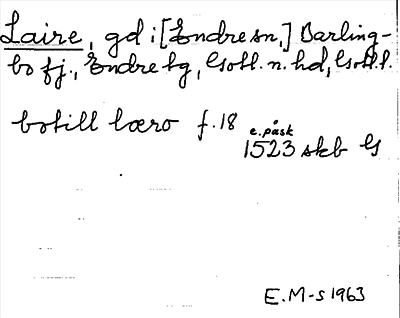 Laire, gd i [Endre sn,] Barling-
bo fj., Endre tg, Gotl. n. hd, Gotl. l.
botill læro f. 18 e. påsk
1523 skb G
E.M-s 1963